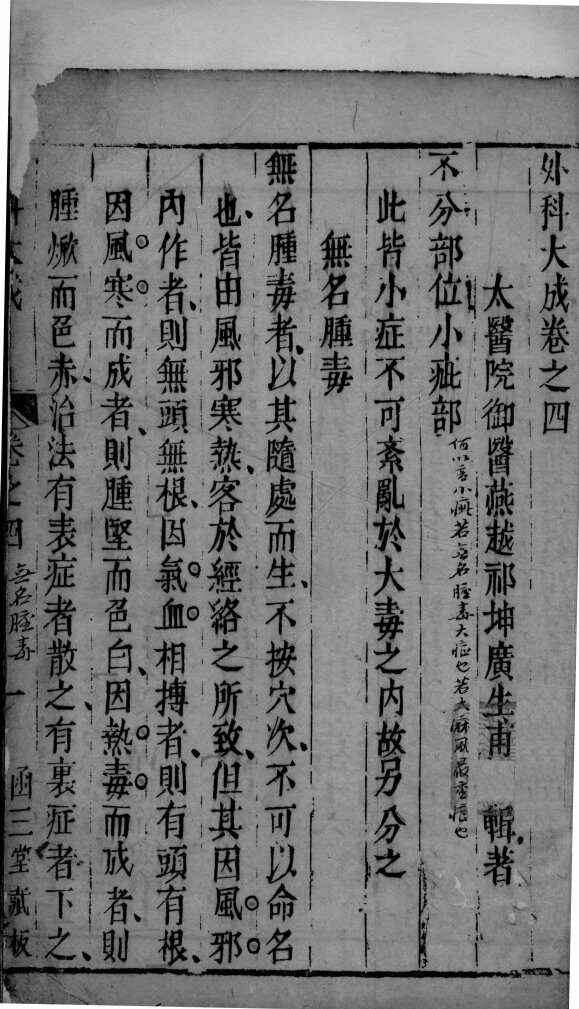 外科大成卷之四
太醫院御醫燕越祁坤廣生甫 輯著
不分部位小疵部
小疵若無名腫毒大症也若大麻風最重症也
此皆小症不可紊亂於大毒之內故另分之
無名腫毒
無名腫毒者、以其隨處而生、不按穴次、不可以命名
也、皆由風邪寒熱、客於經絡之所致、但其因風邪
內作者、則無頭無根、因氣血相搏者、則有頭有根、
因風寒而成者、則腫堅而色白、因熱毒而成者、則
腫焮而色赤、治法有表症者散之、有裏症者下之、
科大成
卷之四 無名腫毒 一 函三堂藏板